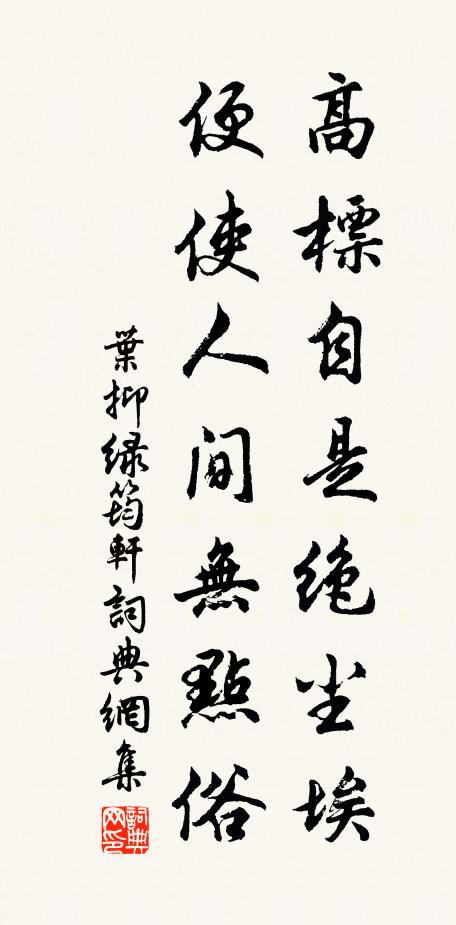 高標自是绝尘埃
便使人间無點俗
葉抑绿筠軒詞典網集
詞典网印